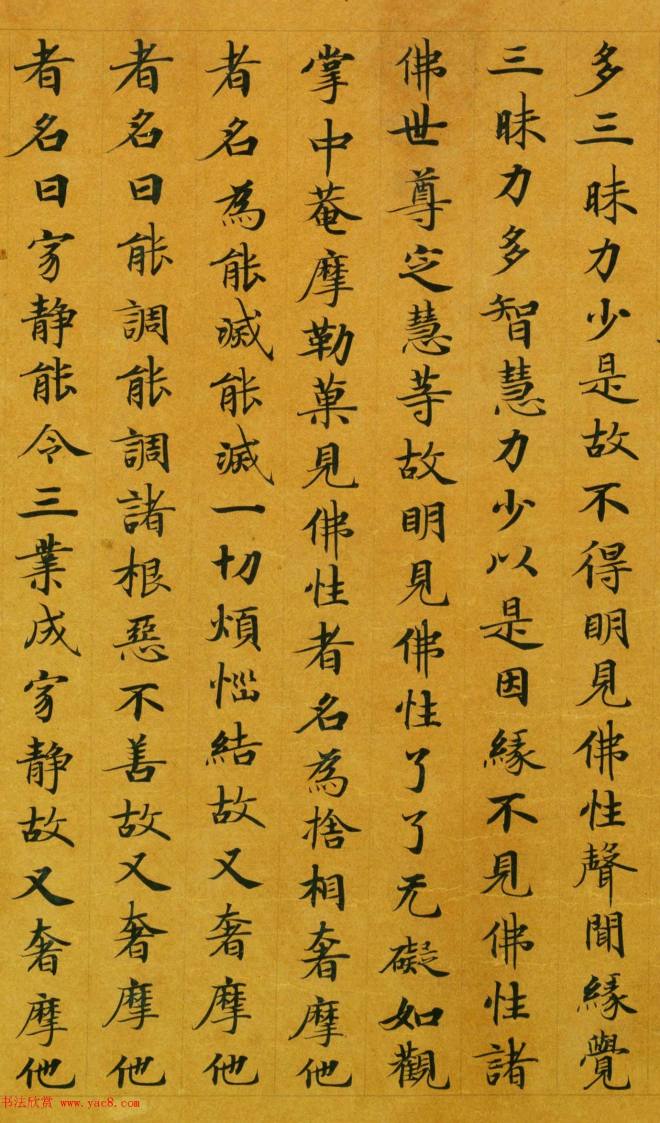 多三昧力少是故不得明見佛性聲聞緣覺
三昧力多智慧力少以是因緣不見佛性諸
佛世尊定慧等故明見佛性了了无礙如觀
掌中菴摩勒菓見佛性者名為捨相奢摩他
者名為能滅能滅一切煩惱結故又奢摩他
者名曰能調能調諸根惡不善故又奢摩他
者名曰寂静能令三業成寂静故又奢摩他
书法欣赏 www.yac8.com